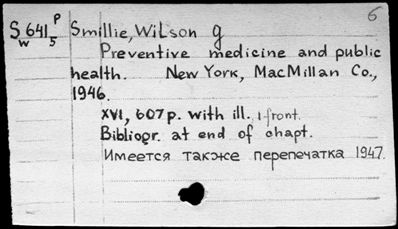 6
S 641 P Smillie, Wilson G
w 5
Preventive medicine and public
health. New York, MacMillan Co.,
1946.
XVI, 607 p. with ill., 1 front.
Bibliogr. at end of chapt.
Имеется также перепечатка 1947.